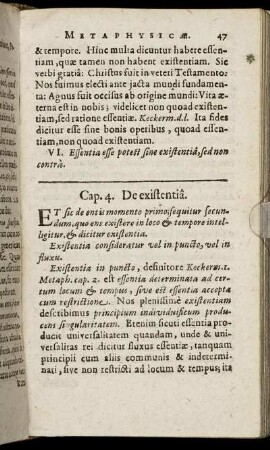 METAPHYSICÆ. 47
& tempore. Hinc multa dicuntur habere essen-
tiam, quæ tamen non habent existentiam. Sic
verbi gratiâ: Christus fuit in veteri Testamento:
Nos fuimus electi ante jacta mundi fundamen-
ta: Agnus fuit occisus ab origine mundi: Vita æ-
terna est in nobis; videlicet non quoad existen-
tiam, sed ratione essentiæ. Keckerm. d. l. Ita fides
dicitur esse sine bonis operibus, quoad essen-
tiam, non quoad existentiam.
VI. Essentia esse potest sine existentiâ, sed non
contrà.
Cap. 4. De existentiâ.
ET sic de entis momento primo; sequitur secun-
dum, quo ens existere in loco & tempore intel-
ligitur, & dicitur existentia.
Existentia consideratur vel in puncto, vel in
fluxu.
Existentia in puncto, definitore Keckerm. 1.
Metaph. cap. 2. est essentia determinata ad cer-
tum locum & tempus, sive est essentia accepta
cum restrictione. Nos plenissimè existentiam
describimus principium individuificum produ-
cens singularitatem. Etenim sicuti essentia pro-
ducit universalitatem quandam, unde & uni-
versalitas rei dicitur fluxus essentiæ, tanquam
principii cum aliis communis & indetermi-
nati, sive non restricti ad locum & tempus; ita